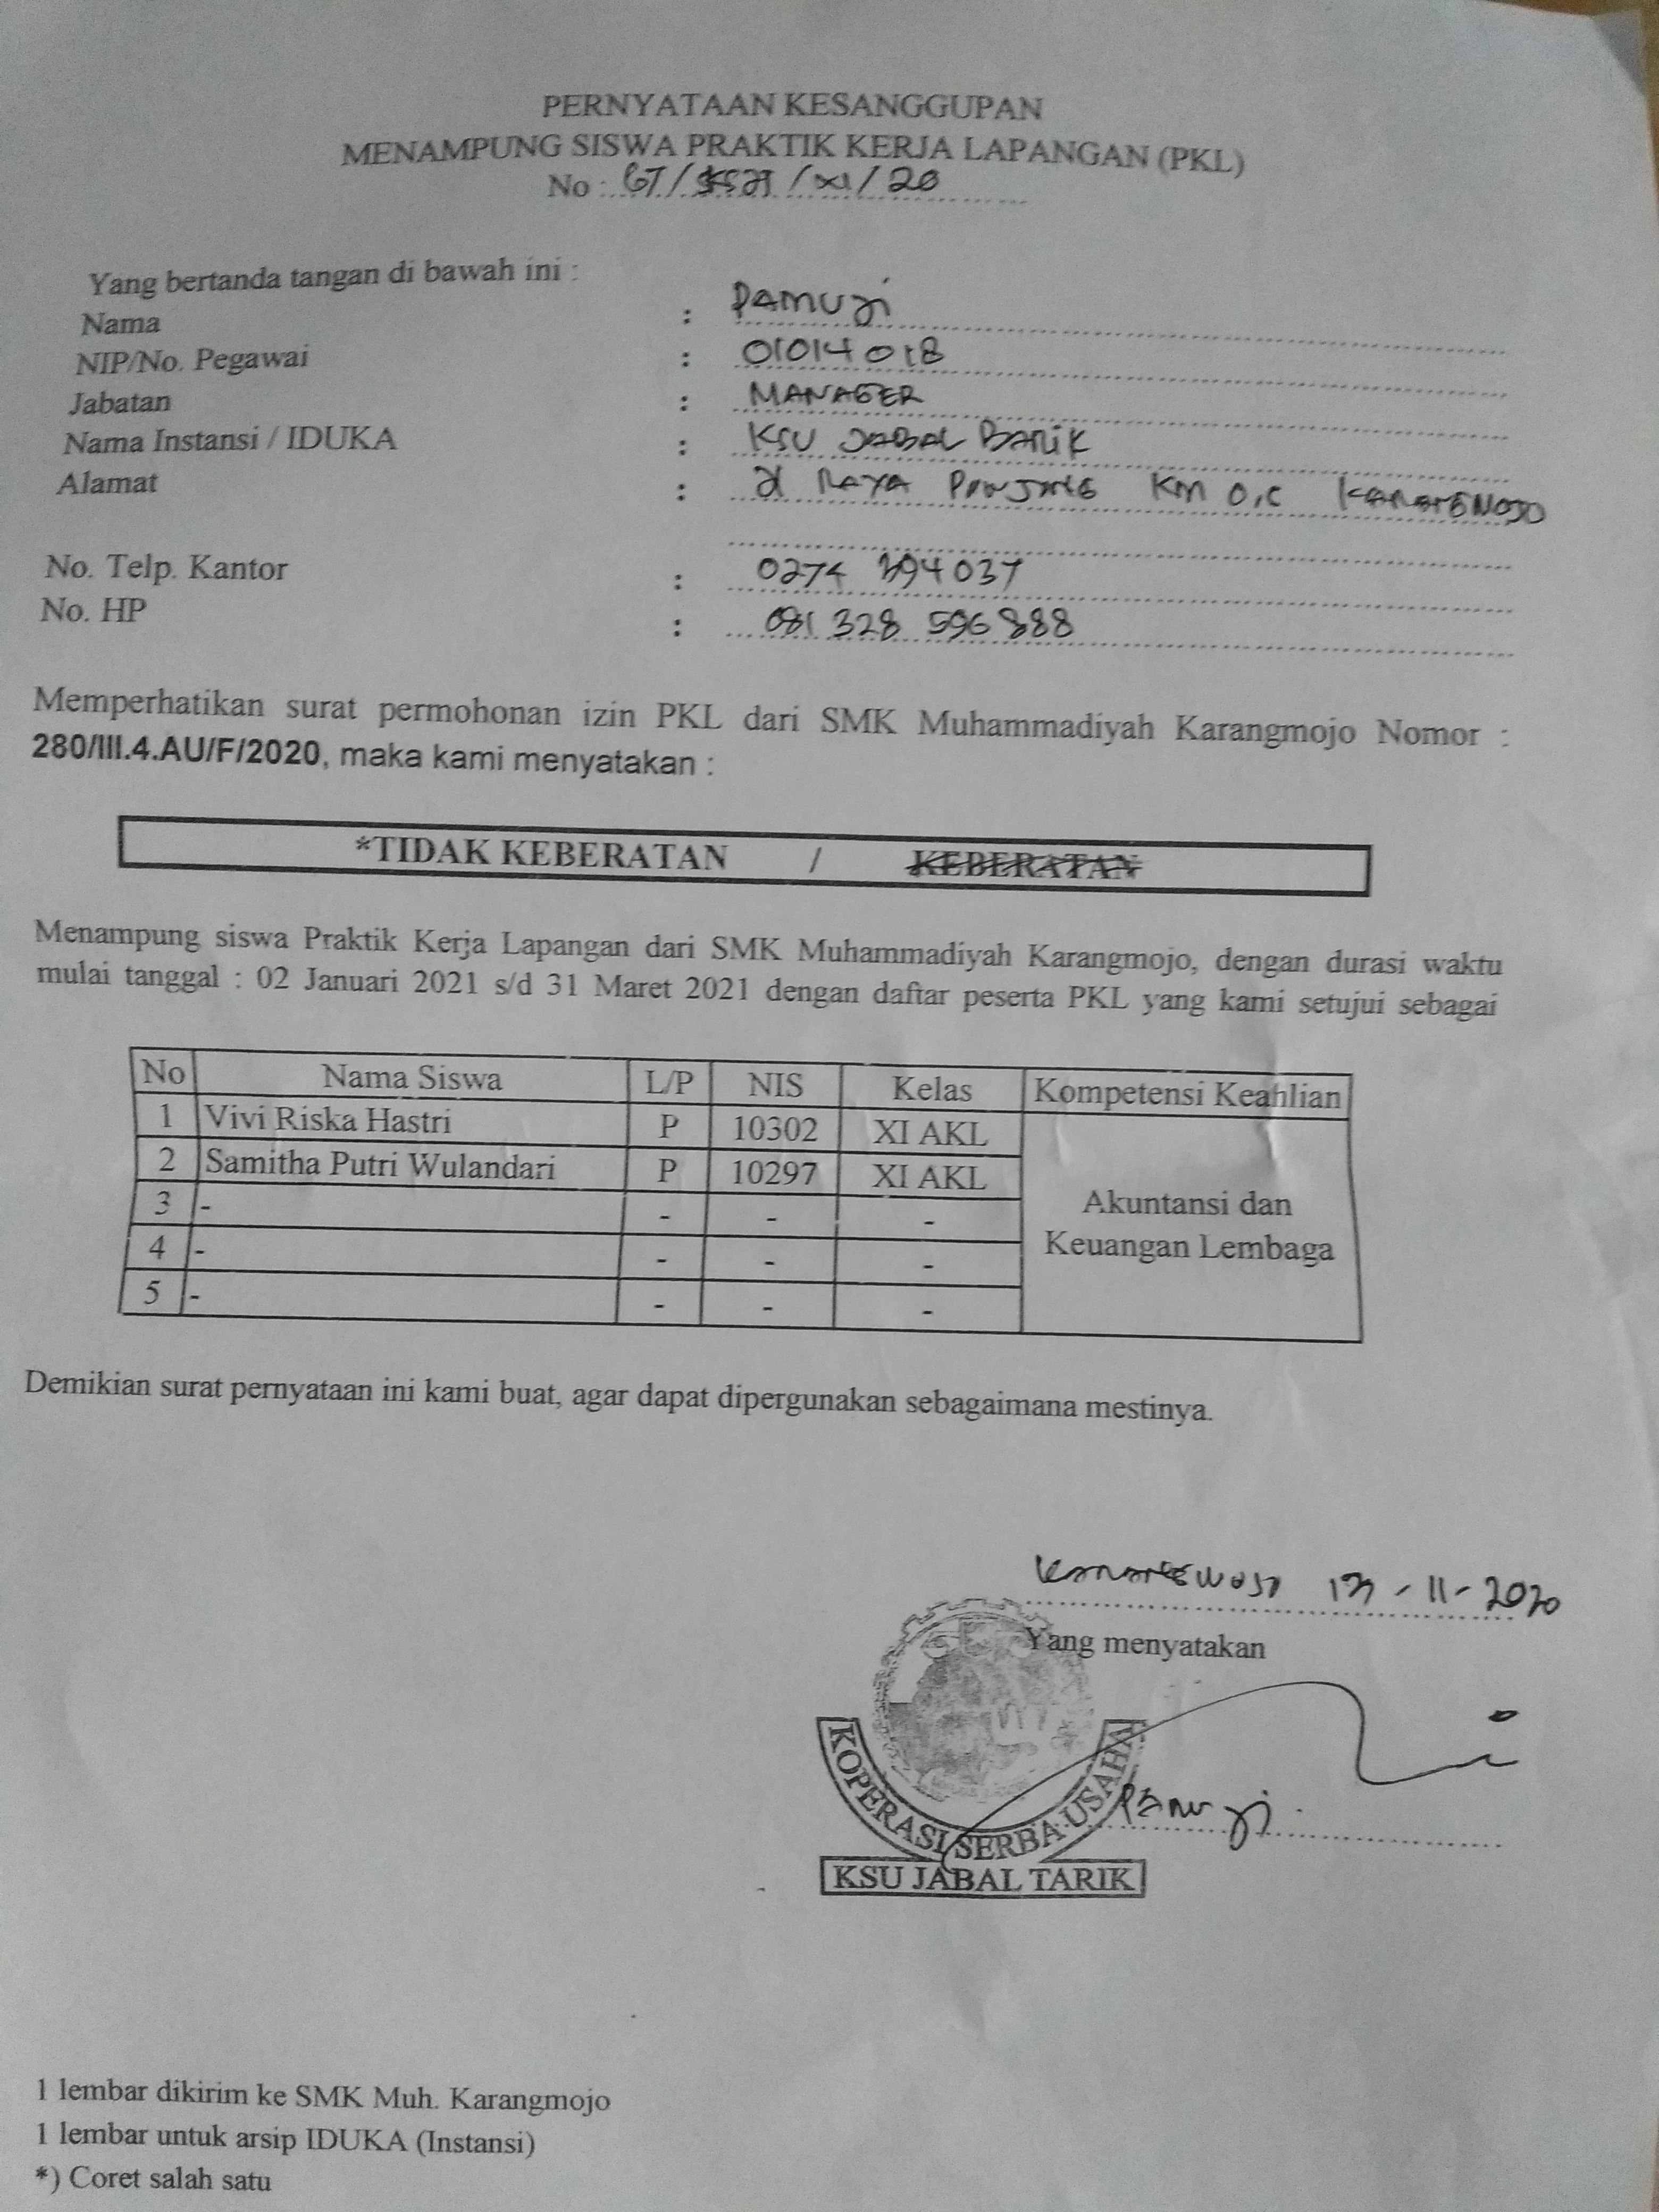 PERNYATAAN KESANGGUPAN
MENAMPUNG SISWA PRAKTIK KERJA LAPANGAN (PKL)
No : /XI/20
Yang bertanda tangan di bawah ini :
Nama : Pamuji
NIP/No. Pegawai : 01014018
Jabatan : MANAGER
Nama Instansi / IDUKA : KSU JABAL TARIK
Alamat : Jl RAYA KM KARANGMOJO
No. Telp. Kantor : 0274 394037
No. HP : 081 328 596 888
Memperhatikan surat permohonan izin PKL dari SMK Muhammadiyah Karangmojo Nomor :
280/III.4.AU/F/2020, maka kami menyatakan :
*TIDAK KEBERATAN / KEBERATAN
Menampung siswa Praktik Kerja Lapangan dari SMK Muhammadiyah Karangmojo, dengan durasi waktu
mulai tanggal : 02 Januari 2021 s/d 31 Maret 2021 dengan daftar peserta PKL yang kami setujui sebagai
No Nama Siswa L/P NIS Kelas Kompetensi Keahlian
1 Vivi Riska Hastri P 10302 XI AKL
2 Samitha Putri Wulandari P 10297 XI AKL
3 - - - -
4 - - - -
5 - - - -
Akuntansi dan
Keuangan Lembaga
Demikian surat pernyataan ini kami buat, agar dapat dipergunakan sebagaimana mestinya.
Karangmojo 13 - 11 - 2020
Yang menyatakan
Pamuji
KOPERASI SERBA USAHA
KSU JABAL TARIK
1 lembar dikirim ke SMK Muh. Karangmojo
1 lembar untuk arsip IDUKA (Instansi)
*) Coret salah satu